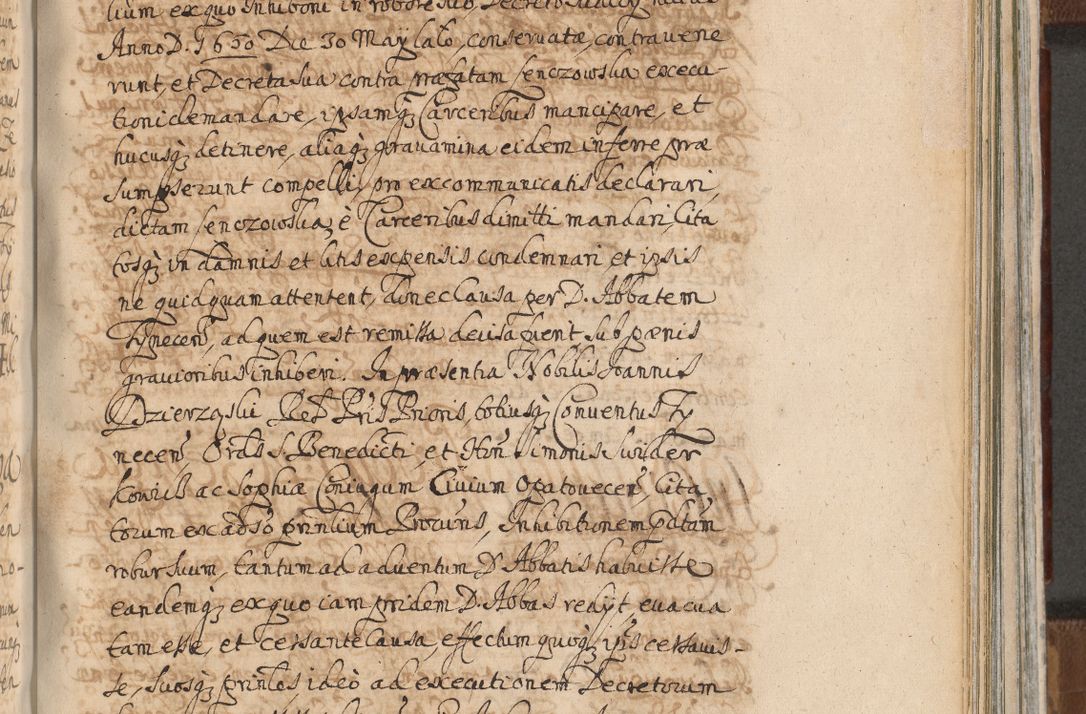 lium ex quo Inhiboni in robore suo, Decreto
Anno D. 1650 Die 30 Maij lato, conservatæ, contravene
runt, et Decreta sua contra præfatam Senczowska execu-
tioni demandare, ipsamq; Carceribus mancipare, et
hucusq; detinere, aliaq; gravamina eidem inferre præ
sumpserunt compelli, pro excommunicatis declarari,
dictam Senczowska, è Carceribus dimitti mandari, Cita
tosq; in damnis et litis expensis condemnari, et ipsis
ne quidquam attentent, donec Causa per D. Abbatem
Tynecen, ad quem est remissa decisa fient, sub pænis
gravioribus inhiberi. In præsentia Nobilis Joannis
Dzierzqski Red Pris Prioris, totiusq; Conventus Ty
necen, Ordis S. Benedicti, et Hon Simonis
kowicz ac Sophiæ Coniugum Civium Opatovecen, Cita
torum ex adso prinlium Procuris, Inhibitionem pdtam
robur suum, tantum ad adventum D. Abbatis habuisse
eandemq; ex quo iam pridem D. Abbas redijt, evacua
tam esse, et cessante Causa, effectum quoq; ipsis cessavis-
se, suosq; prinles ideò ad executionem Decretorum